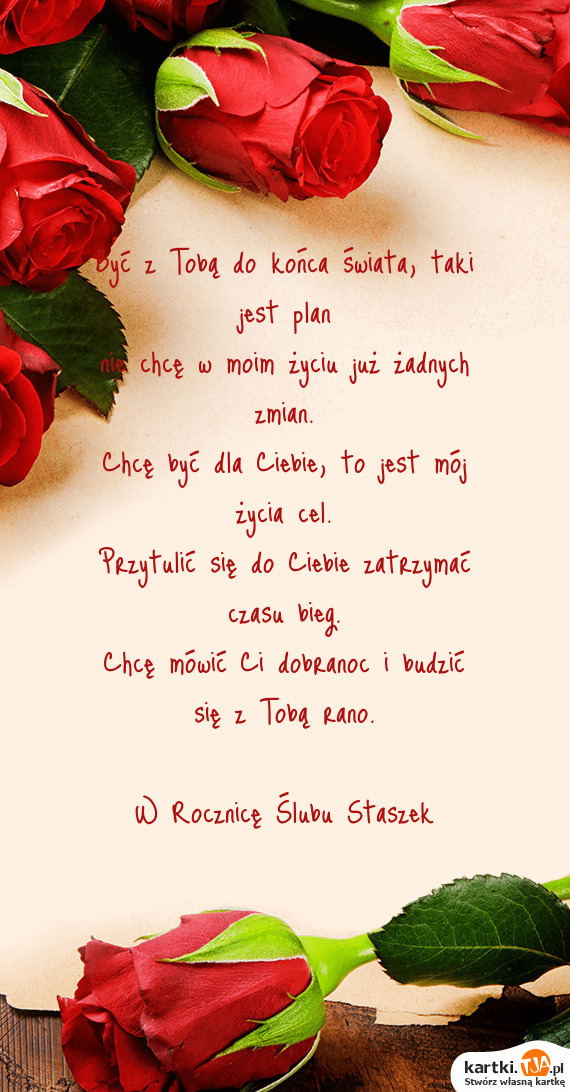 Być z Tobą do końca świata, taki
jest plan
nie chcę w moim życiu już żadnych
zmian.
Chcę być dla Ciebie, to jest mój
życia cel.
Przytulić się do Ciebie zatrzymać
czasu bieg.
Chcę mówić Ci dobranoc i budzić
się z Tobą rano.
W Rocznicę Ślubu Staszek
kartki.TJA.pl
Stwórz własną kartkę